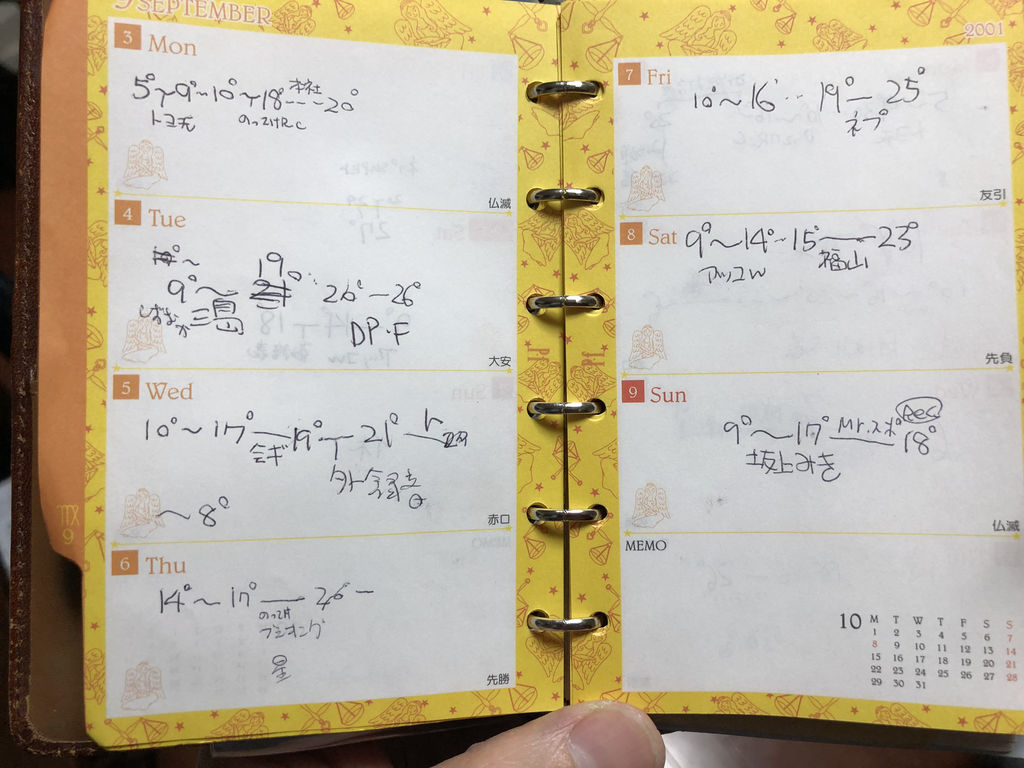 9 SEPTEMBER
3 Mon
5°〜9°--10°〜18° 本社 ---20°
のっけRC
仏滅
4 Tue
9°〜 19° 26°—26°
三島
DP.F
大安
5 Wed
10°〜17°—19°〜21°—
会ギ
外録音
〜8°
赤口
6 Thu
14°〜17°—26—
のっけ
星
先勝
2001
7 Fri
10°〜16°--19°—25°
ネプ
友引
8 Sat
9°〜14°--15°—23°
アッコW 福山
先負
9 Sun
9°〜17° Mr.スポ Rec 18°
坂上みき
仏滅
MEMO
10 M T W T F S S
1 2 3 4 5 6 7
8 9 10 11 12 13 14
15 16 17 18 19 20 21
22 23 24 25 26 27 28
29 30 31
♍
9